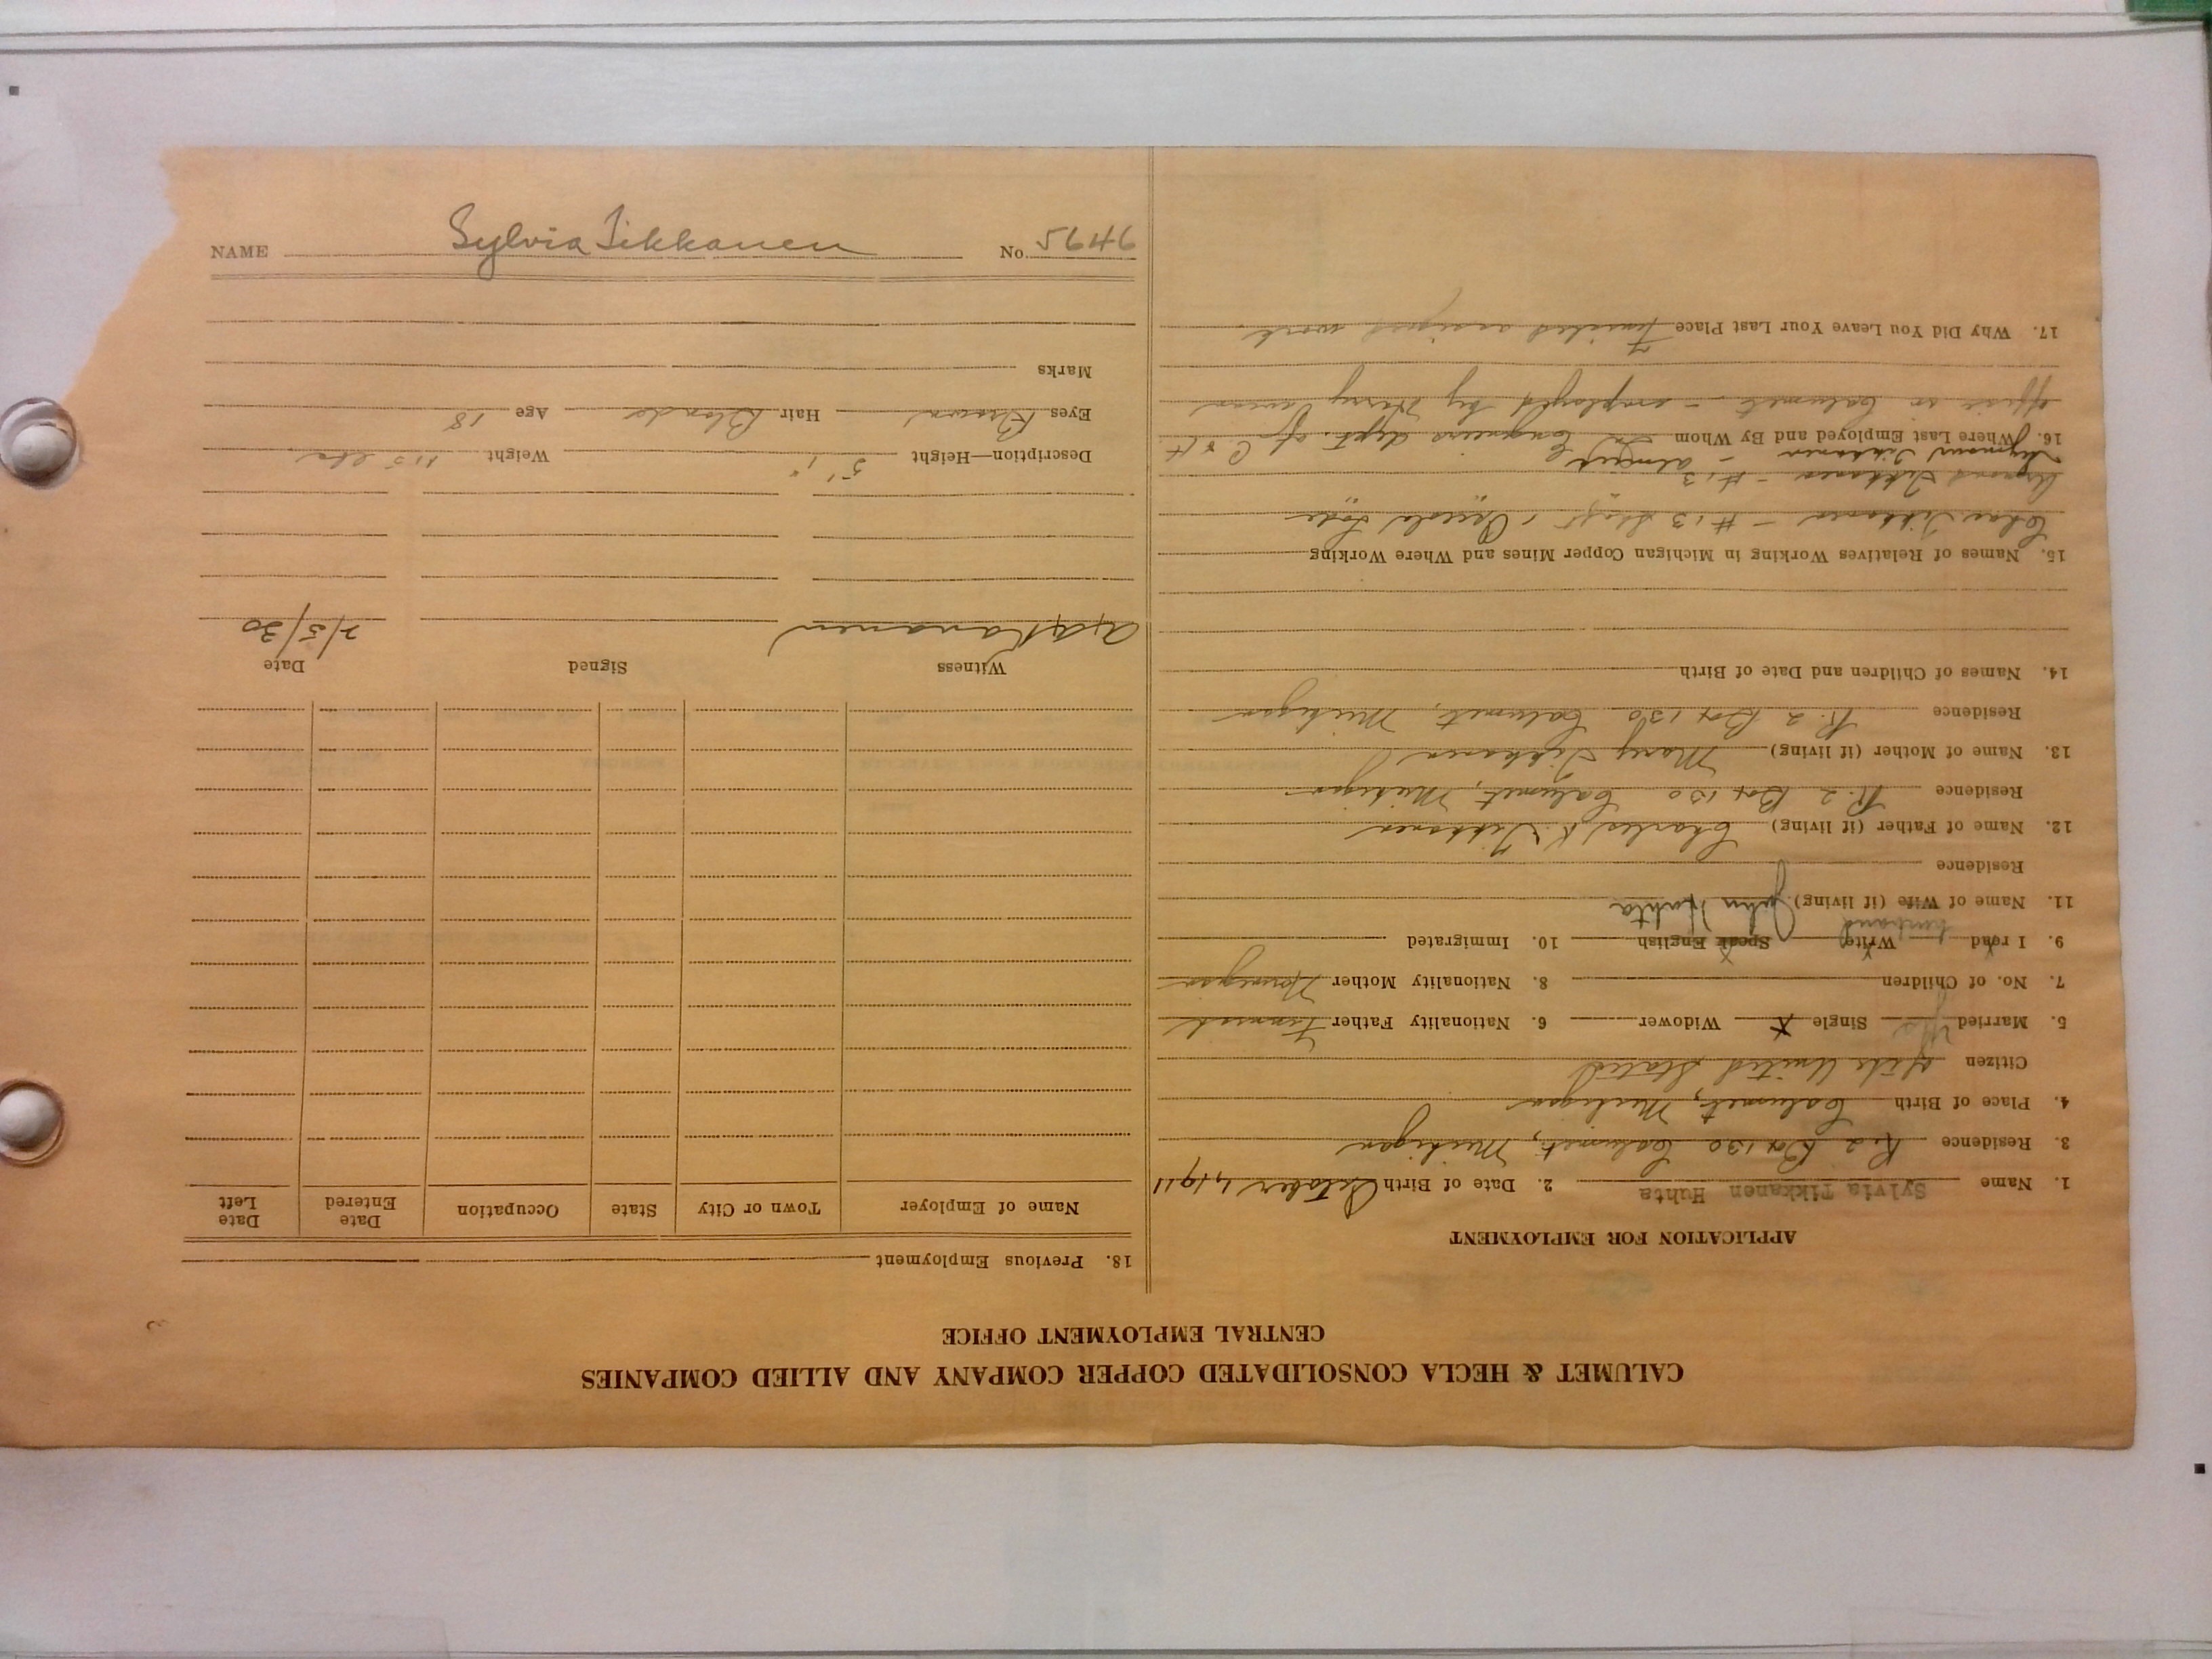 CALUMET & HECLA CONSOLIDATED COPPER COMPANY AND ALLIED COMPANIES
CENTRAL EMPLOYMENT OFFICE
APPLICATION FOR EMPLOYMENT
1. Name Sylvia Tikkanen Huhta 2. Date of Birth October 4, 1911
3. Residence R. 2 Box 130 Calumet, Michigan
4. Place of Birth Calumet, Michigan
Citizen of the United States
5. Married yes Single X Widower 6. Nationality Father Finnish
7. No. of Children 8. Nationality Mother Norwegian
9. I read X Write X Speak English X 10. Immigrated
husband
11. Name of Wife (if living) John Huhta
Residence
12. Name of Father (if living) Charles K. Tikkanen
Residence R. 2 Box 130 Calumet, Michigan
13. Name of Mother (if living) Mary Tikkanen
Residence R. 2 Box 130 Calumet, Michigan
14. Names of Children and Date of Birth
15. Names of Relatives Working in Michigan Copper Mines and Where Working
Chas Tikkanen - #13 Osceola Lode
Tikkanen - #13 " "
Tikkanen - Ahmeek
16. Where Last Employed and By Whom In Engineers dept. of C & H
office in Calumet - employed by Harry
17. Why Did You Leave Your Last Place Finished assigned work.
18. Previous Employment
Name of Employer Town or City State Occupation Date Entered Date Left
Witness Signed Date
2/5/30
Description—Height 5' 1" Weight 115 lbs.
Eyes Brown Hair Blonde Age 18
Marks
NAME Sylvia Tikkanen No. 5646